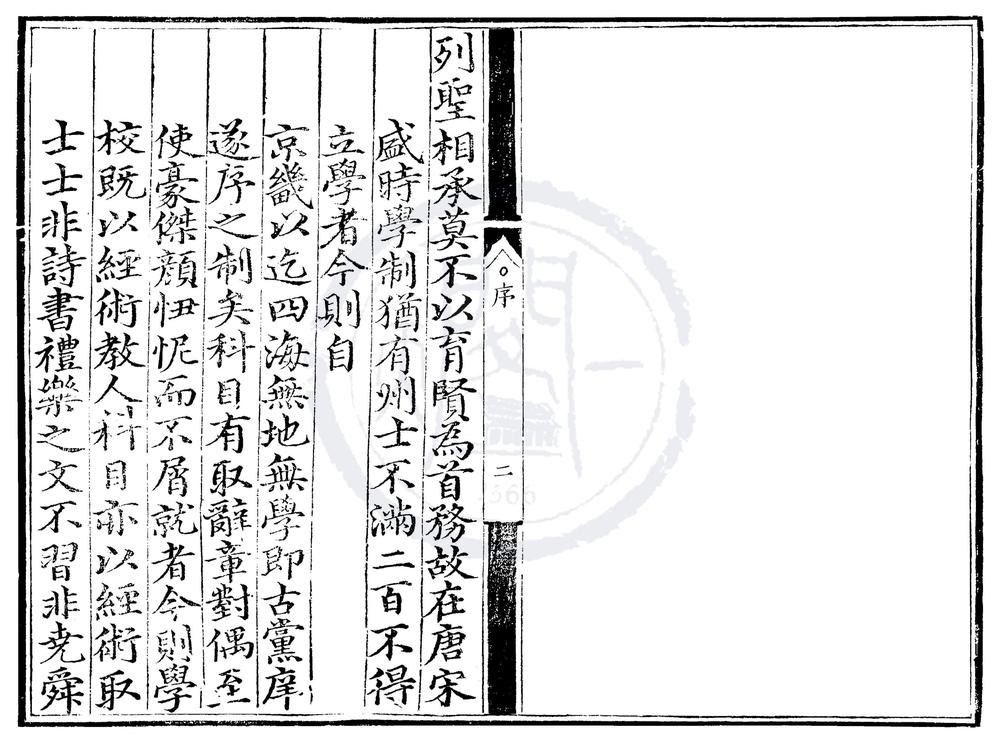 列聖相承莫不以育賢為首務故在唐宋
盛時學制猶有州士不滿二百不得
立學者今則自
京畿以迄四海無地無學即古黨庠
遂序之制矣科目有取辭章對偶至
使豪傑顏忸怩而不屑就者今則學
校既以經術教人科目亦以經術取
士士非詩書禮樂之文不習非堯舜
序
二